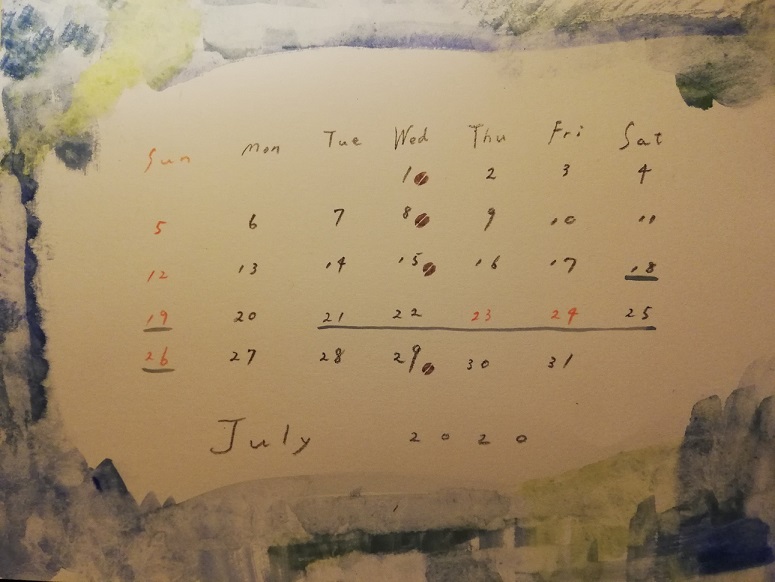 Sun Mon Tue Wed Thu Fri Sat
1 2 3 4
5 6 7 8 9 10 11
12 13 14 15 16 17 18
19 20 21 22 23 24 25
26 27 28 29 30 31
July 2020